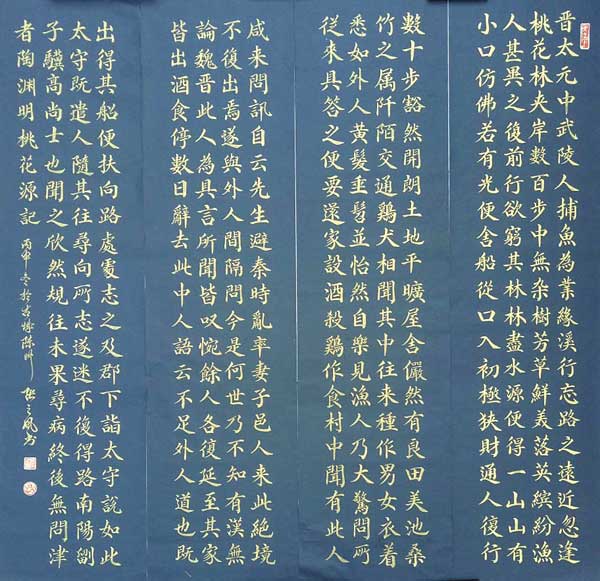 晉太元中武陵人捕魚為業緣溪行忘路之遠近忽逢
桃花林夾岸數百步中無杂樹芳草鮮美落英繽紛漁
人甚異之復前行欲窮其林林盡水源便得一山山有
小口仿佛若有光便舍船從口入初極狹財通人復行
數十步豁然開朗土地平曠屋舍儼然有良田美池桑
竹之属阡陌交通鷄犬相聞其中往来種作男女衣着
悉如外人黃髮垂髫並怡然自樂見漁人乃大驚問所
從来具答之便要還家設酒殺鷄作食村中聞有此人
咸来問訊自云先生避秦時亂率妻子邑人来此絶境
不復出焉遂與外人間隔問今是何世乃不知有漢無
論魏晉此人為具言所聞皆叹惋餘人各復延至其家
皆出酒食停數日辭去此中人語云不足外人道也既
出得其船便扶向路處處志之及郡下詣太守說如此
太守既遣人隨其往尋向所志遂迷不復得路南陽劉
子驥高尚士也聞之欣然規往未果尋病終後無問津
者陶渊明桃花源記 丙申